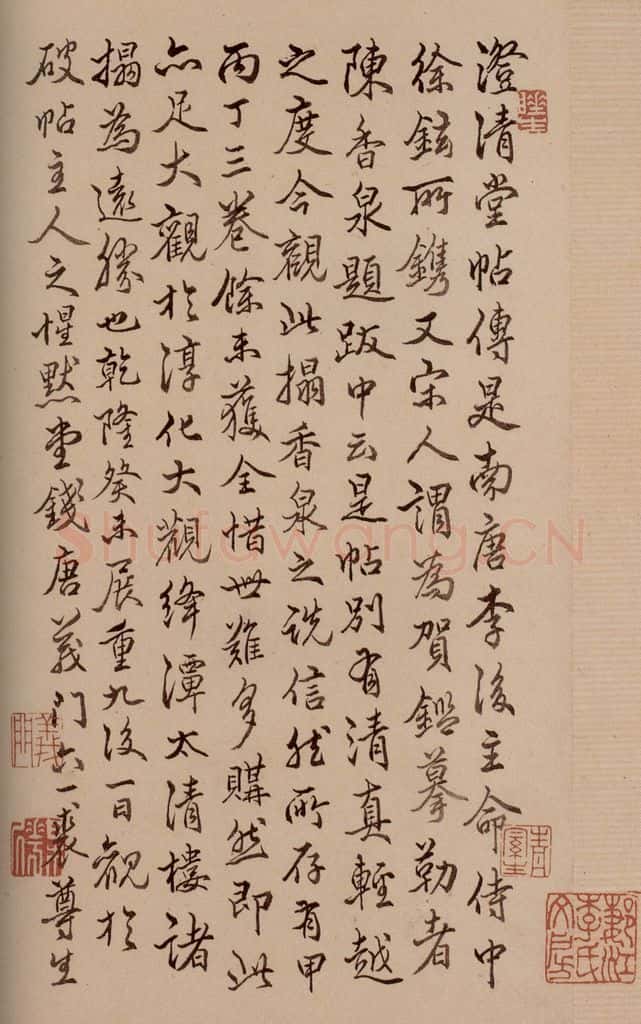 澄清堂帖傳是南唐李後主命侍中
徐鉉所鐫又宋人謂為賀鑑摹勒者
陳香泉題跋中云是帖別有清真輕越
之度今觀此搨香泉之說信然所存有甲
丙丁三卷餘未獲全惜世難多購然即此
亦足大觀於淳化大觀絳潭太清樓諸
搨為遠勝也乾隆癸未展重九後一日觀於
破帖主人之惺默堂錢唐義門六一裘尊生
義門
Shufawang.CN